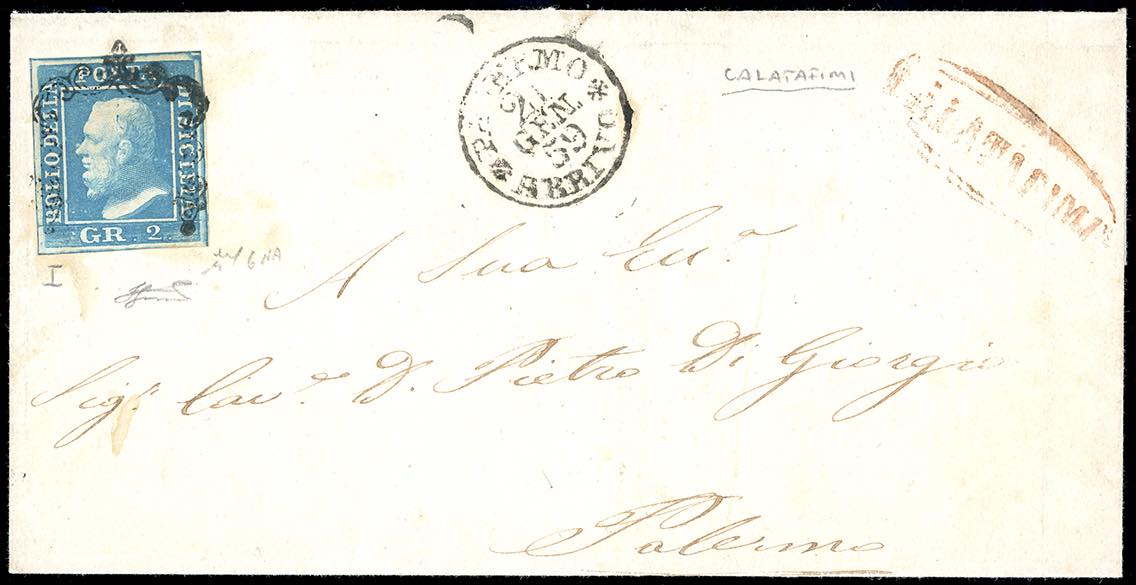 BOLLO DELLA POSTA DI SICILIA
GR. 2.
PALERMO * ARRIVO *
GEN
CALATAFIMI
CALATAFIMI
I
A Sua Ecc.ª
Sig.r Cav.e D. Pietro Di Giorgio
Palermo